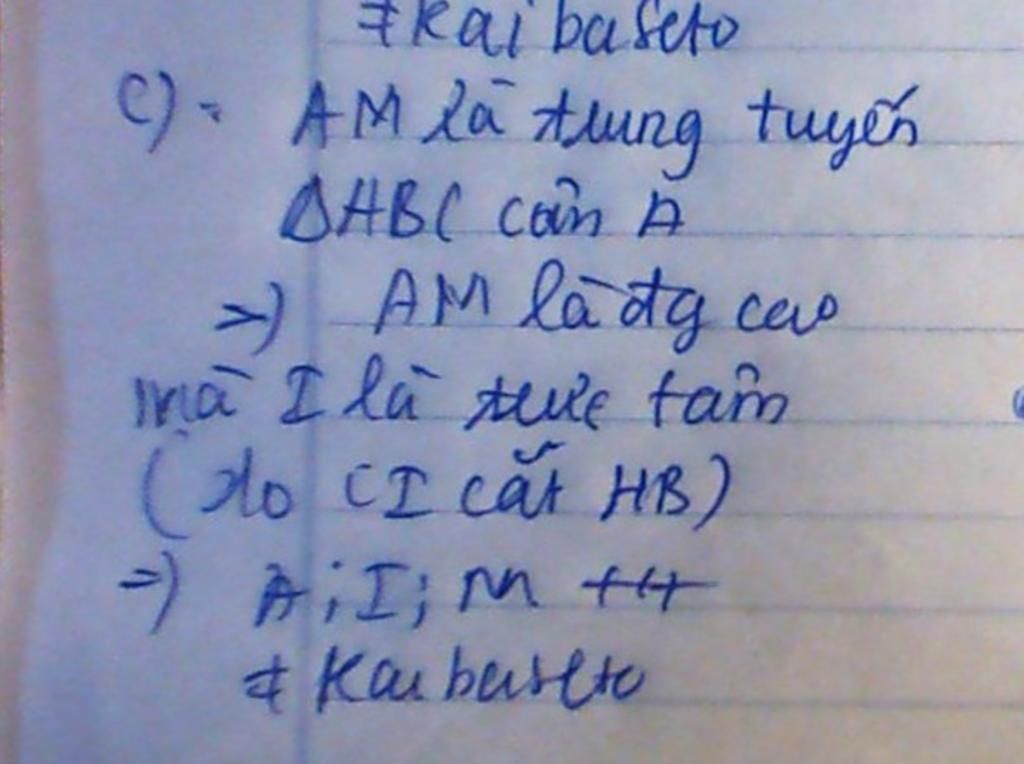 #Kaibaseto
c). AM là trung tuyến
ΔABC cân A
=) AM là đg cao
mà I là trực tâm
(do CI cắt HB)
=) A; I; M t H
# Kaibaseto